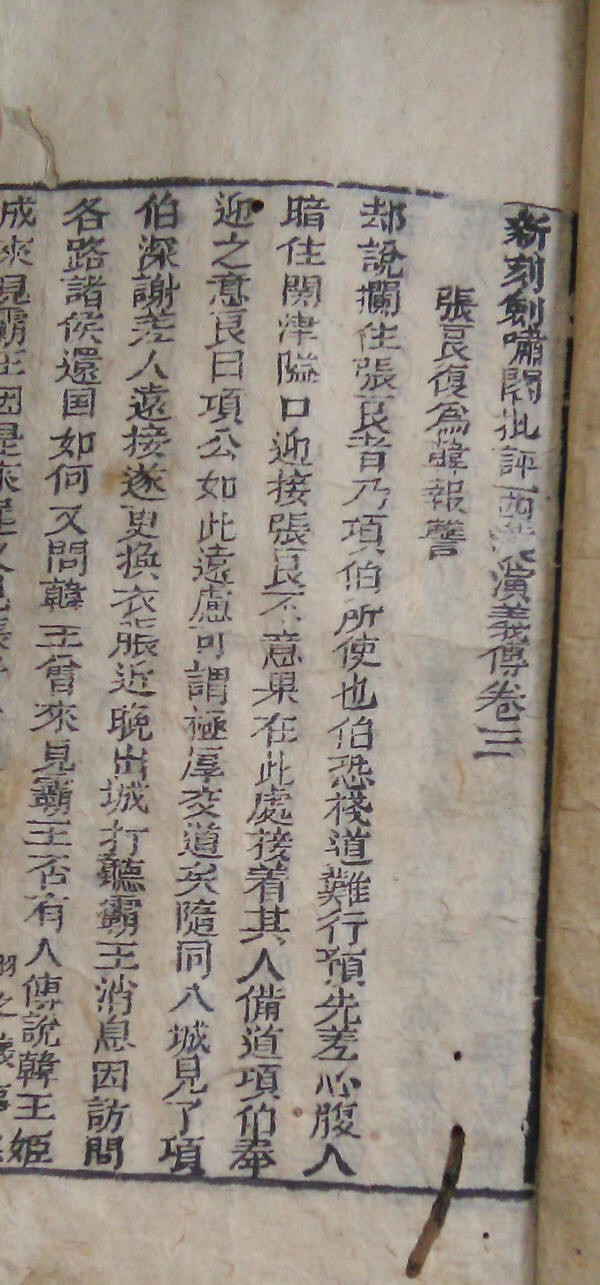 新刻劍嘯閣批評西漢演義傳卷三
張良復為韓報讐
却說攔住張良者乃項伯所使也伯恐棧道難行預先差心腹人
暗住關津隘口迎接張良不意果在此處接着其人備道項伯奉
迎之意良曰項公如此遠慮可謂極厚交道矣隨同入城見了項
伯深謝差人遠接遂更換衣服近晚出城打聽霸王消息因訪問
各路諸侯還国如何又問韓王曾來見霸王否有人傳說韓王姬
成來見霸王因是